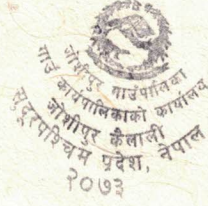 जोशीपुर गाउँपालिका
गाउँ कार्यपालिकाको कार्यालय
जोशीपुर कैलाली
सुदूरपश्चिम प्रदेश, नेपाल
२०७३